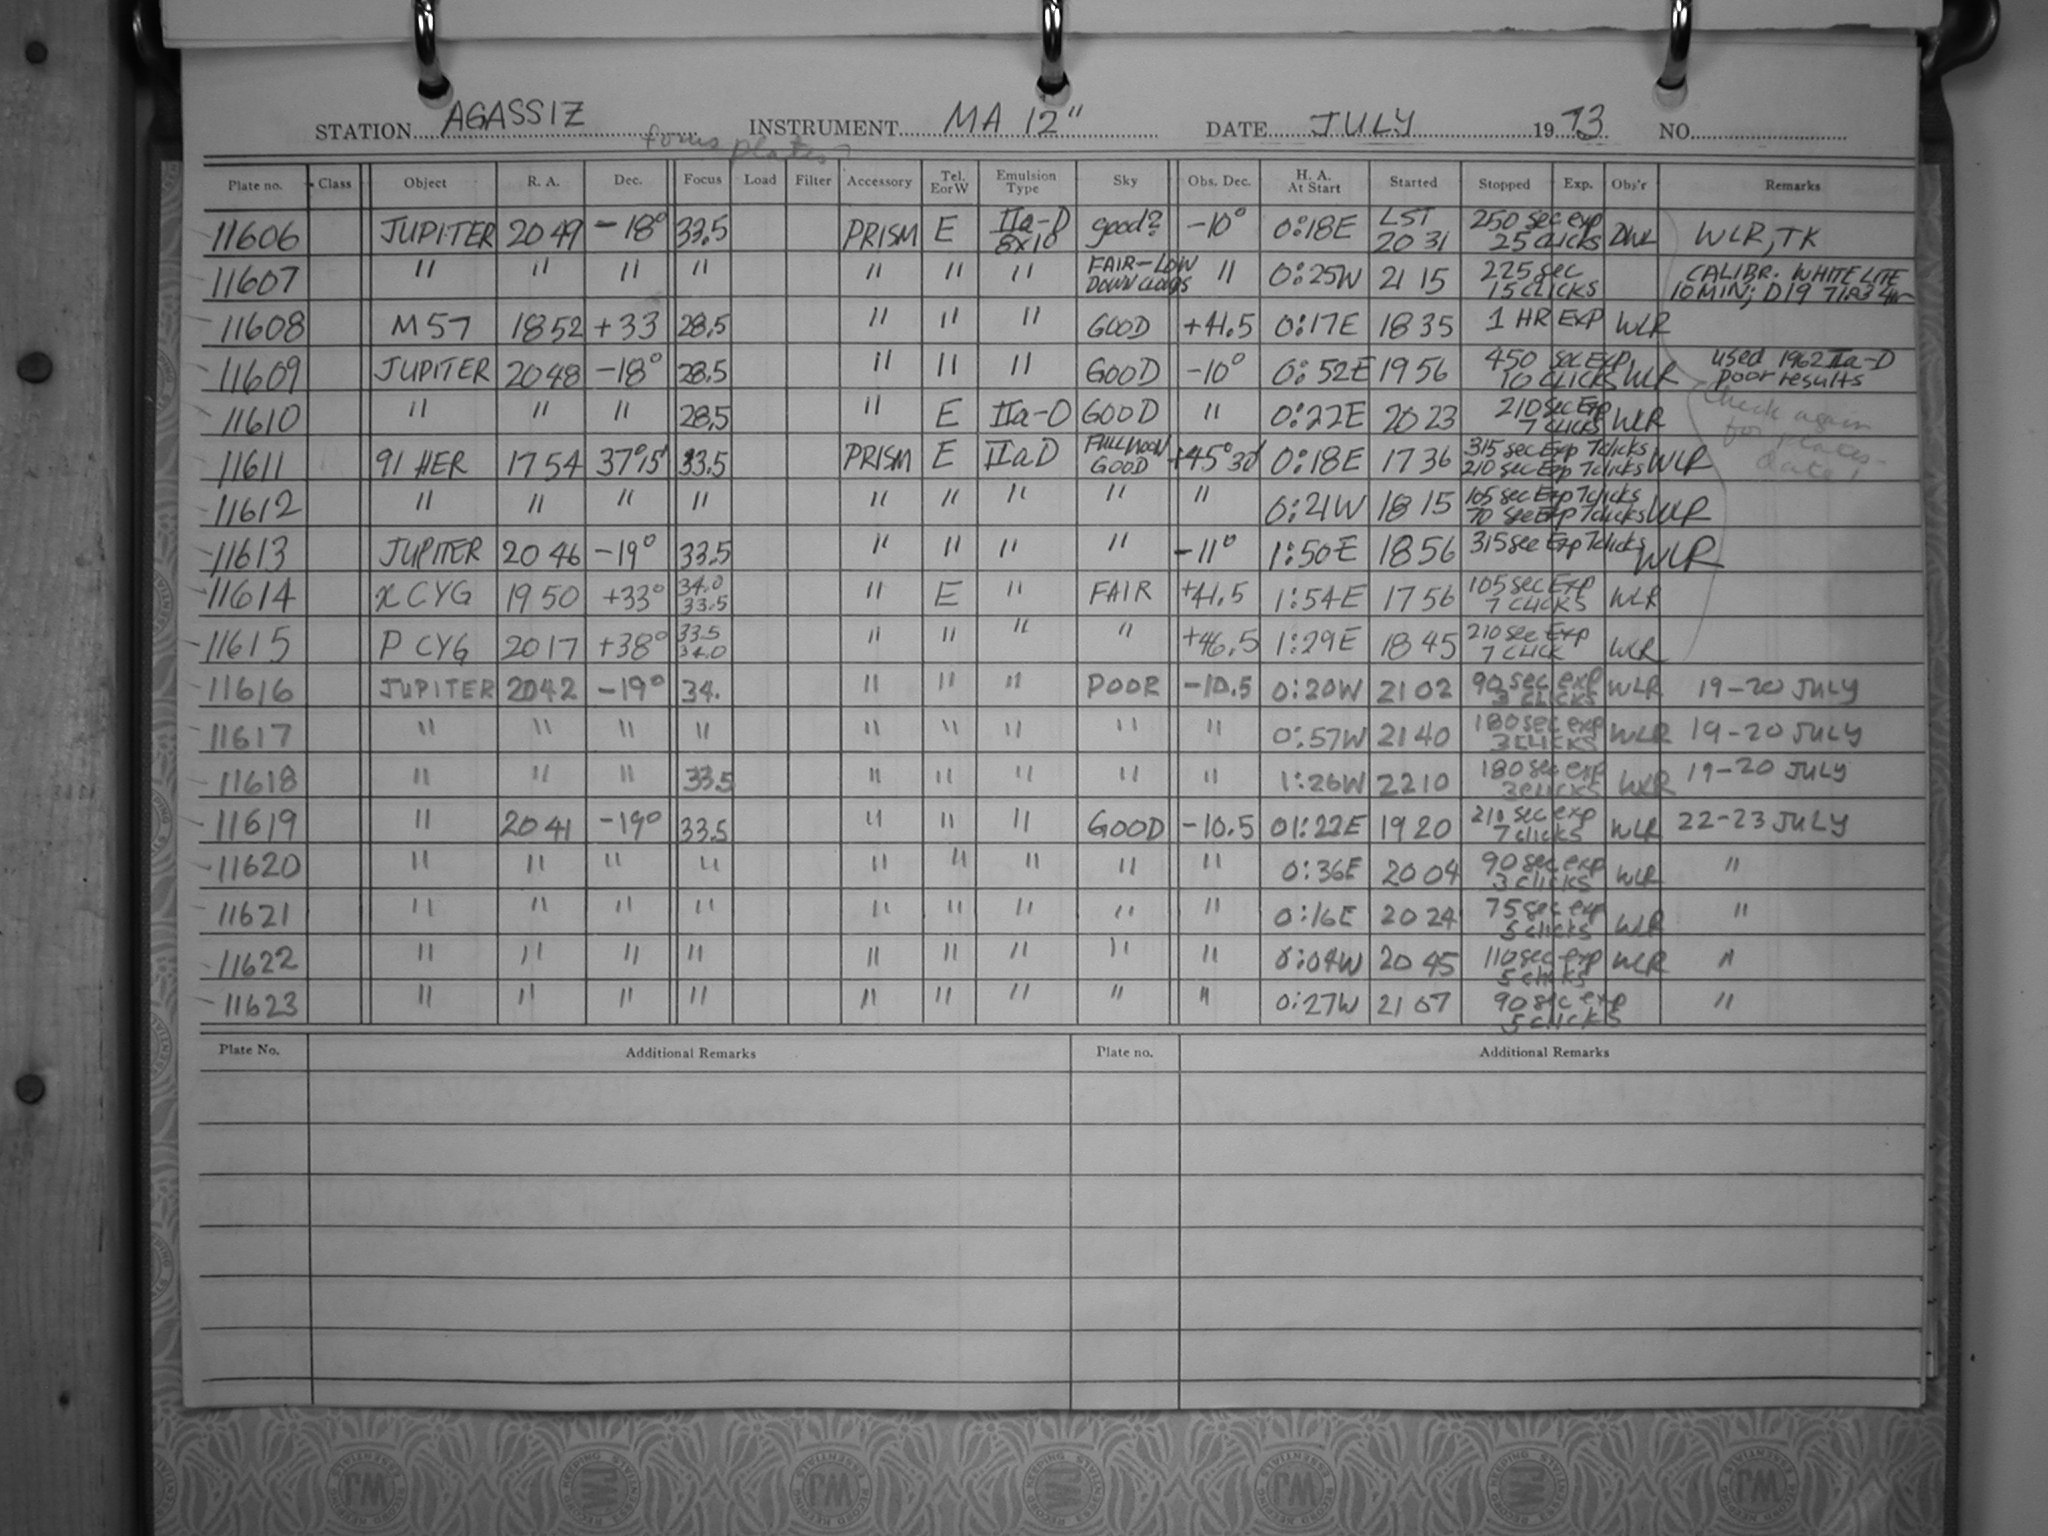 STATION AGASSIZ INSTRUMENT MA 12" DATE JULY 1973 NO.
focus plates
Plate no. Class Object R. A. Dec. Focus Load Filter Accessory Tel. E or W Emulsion Type Sky Obs. Dec. H. A. At Start Started Stopped Exp. Obs'r Remarks
11606 JUPITER 20 49 -18° 33.5 PRISM E IIa-D 8x10 good? -10° 0:18E LST 20 31 250 sec exp 25 CLICKS WLR, TK
11607 " " " " " " " FAIR-LOW DOWN CLOUDS " 0:25W 21 15 225 sec 15 CLICKS CALIBR. WHITE LITE 10 MIN; D19
11608 M57 18 52 +33 28.5 " " " GOOD +41.5 0:17E 18 35 1 HR EXP WLR
11609 JUPITER 20 48 -18° 28.5 " " " GOOD -10° 0:52E 19 56 450 sec Exp 10 CLICKS WLR used 1962 IIa-D poor results
11610 " " " 28.5 " E IIa-O GOOD " 0:22E 20 23 210 sec Exp 7 CLICKS WLR check again for plates - date!
11611 91 HER 17 54 37°15' 33.5 PRISM E IIaD FULL MOON GOOD +45°30' 0:18E 17 36 315 sec Exp 7 clicks 210 sec Exp 7 clicks WLR
11612 " " " " " " " " " 0:21W 18 15 105 sec Exp 7 clicks 70 sec Exp 7 clicks WLR
11613 JUPITER 20 46 -19° 33.5 " " " " -11° 1:50E 18 56 315 sec Exp 7 clicks WLR
11614 X CYG 19 50 +33° 34.0 33.5 " E " FAIR +41.5 1:54E 17 56 105 sec Exp 7 CLICKS WLR
11615 P CYG 20 17 +38° 33.5 34.0 " " " " +46.5 1:29E 18 45 210 sec Exp 7 CLICK WLR
11616 JUPITER 20 42 -19° 34. " " " POOR -10.5 0:20W 21 02 90 sec exp 3 CLICKS WLR 19-20 JULY
11617 " " " " " " " " " 0:57W 21 40 180 sec exp 3 CLICKS WLR 19-20 JULY
11618 " " " 33.5 " " " " " 1:26W 22 10 180 sec exp 3 CLICKS WLR 19-20 JULY
11619 " 20 41 -19° 33.5 " " " GOOD -10.5 01:22E 19 20 210 sec exp 7 clicks WLR 22-23 JULY
11620 " " " " " " " " " 0:36E 20 04 90 sec exp 3 clicks WLR "
11621 " " " " " " " " " 0:16E 20 24 75 sec exp 5 clicks WLR "
11622 " " " " " " " " " 0:04W 20 45 110 sec exp 5 clicks WLR "
11623 " " " " " " " " " 0:27W 21 07 90 sec exp 5 CLICKS "
Plate No. Additional Remarks Plate no. Additional Remarks